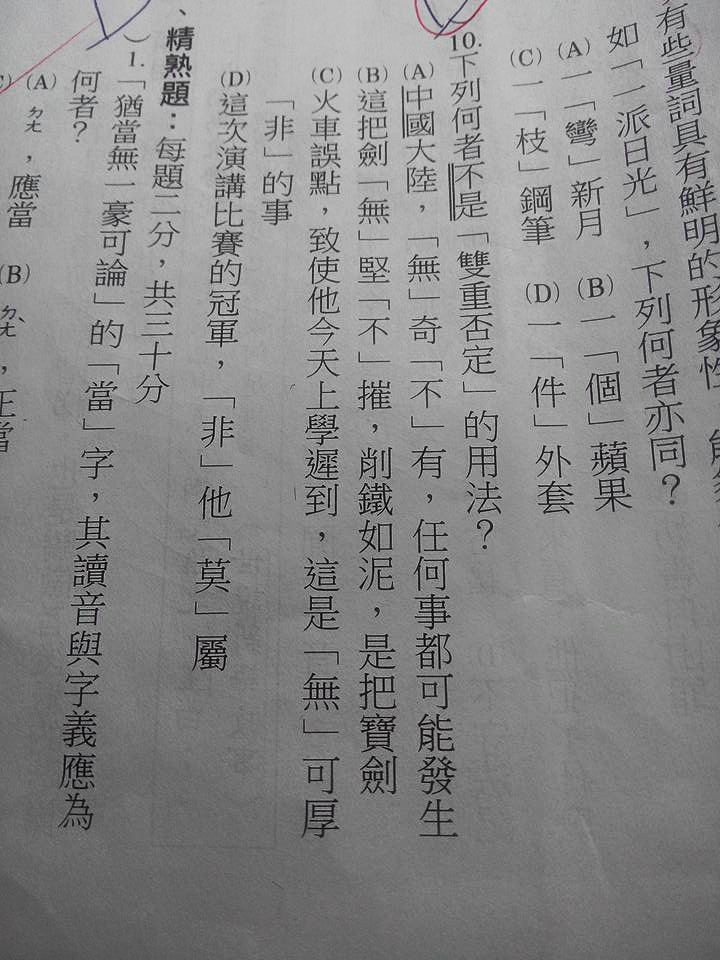 有些量詞具有鮮明的形象性
如「一派日光」,下列何者亦同?
(A) 一「彎」新月 (B) 一「個」蘋果
(C) 一「枝」鋼筆 (D) 一「件」外套
10. 下列何者不是「雙重否定」的用法?
(A) 中國大陸,「無」奇「不」有,任何事都可能發生
(B) 這把劍「無」堅「不」摧,削鐵如泥,是把寶劍
(C) 火車誤點,致使他今天上學遲到,這是「無」可厚
「非」的事
(D) 這次演講比賽的冠軍,「非」他「莫」屬
、精熟題:每題二分,共三十分
) 1. 「猶當無一豪可論」的「當」字,其讀音與字義應為
何者?
(A) ㄉㄤ,應當 (B) ㄉㄤˋ,正當